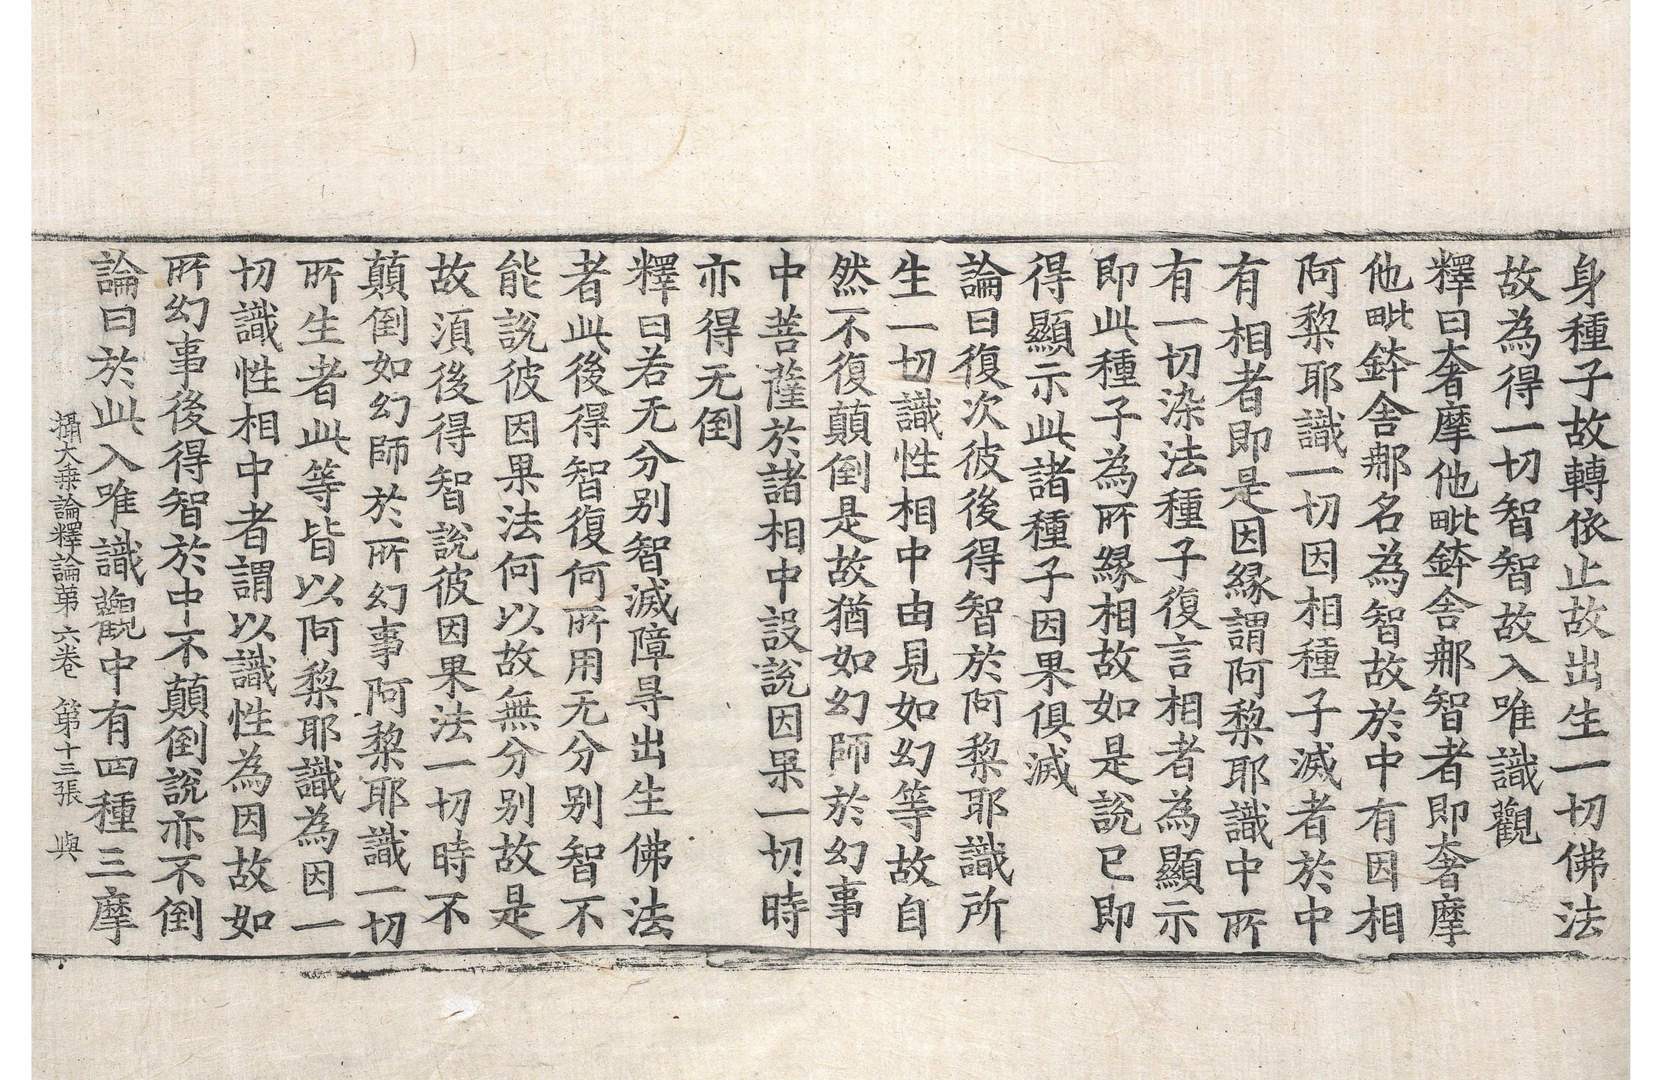 身種子故轉依止故出生一切佛法
故為得一切智智故入唯識觀
釋曰奢摩他毗鉢舍那智者即奢摩
他毗鉢舍那名為智故於中有因相
阿黎耶識一切因相種子滅者於中
有相者即是因緣謂阿黎耶識中所
有一切染法種子復言相者為顯示
即此種子為所緣相故如是說已即
得顯示此諸種子因果俱滅
論曰復次彼後得智於阿黎耶識所
生一切識性相中由見如幻等故自
然不復顛倒是故猶如幻師於幻事
中菩薩於諸相中設說因果一切時
亦得无倒
釋曰若无分別智滅障㝵出生佛法
者此後得智復何所用无分別智不
能說彼因果法何以故無分別故是
故湏後得智說彼因果法一切時不
顛倒如幻師於所幻事阿黎耶識一切
所生者此等皆以阿黎耶識為因一
切識性相中者謂以識性為因故如
所幻事後得智於中不顛倒說亦不倒
論曰於此入唯識觀中有四種三摩
攝大乗論釋論第六卷 第十三張 與